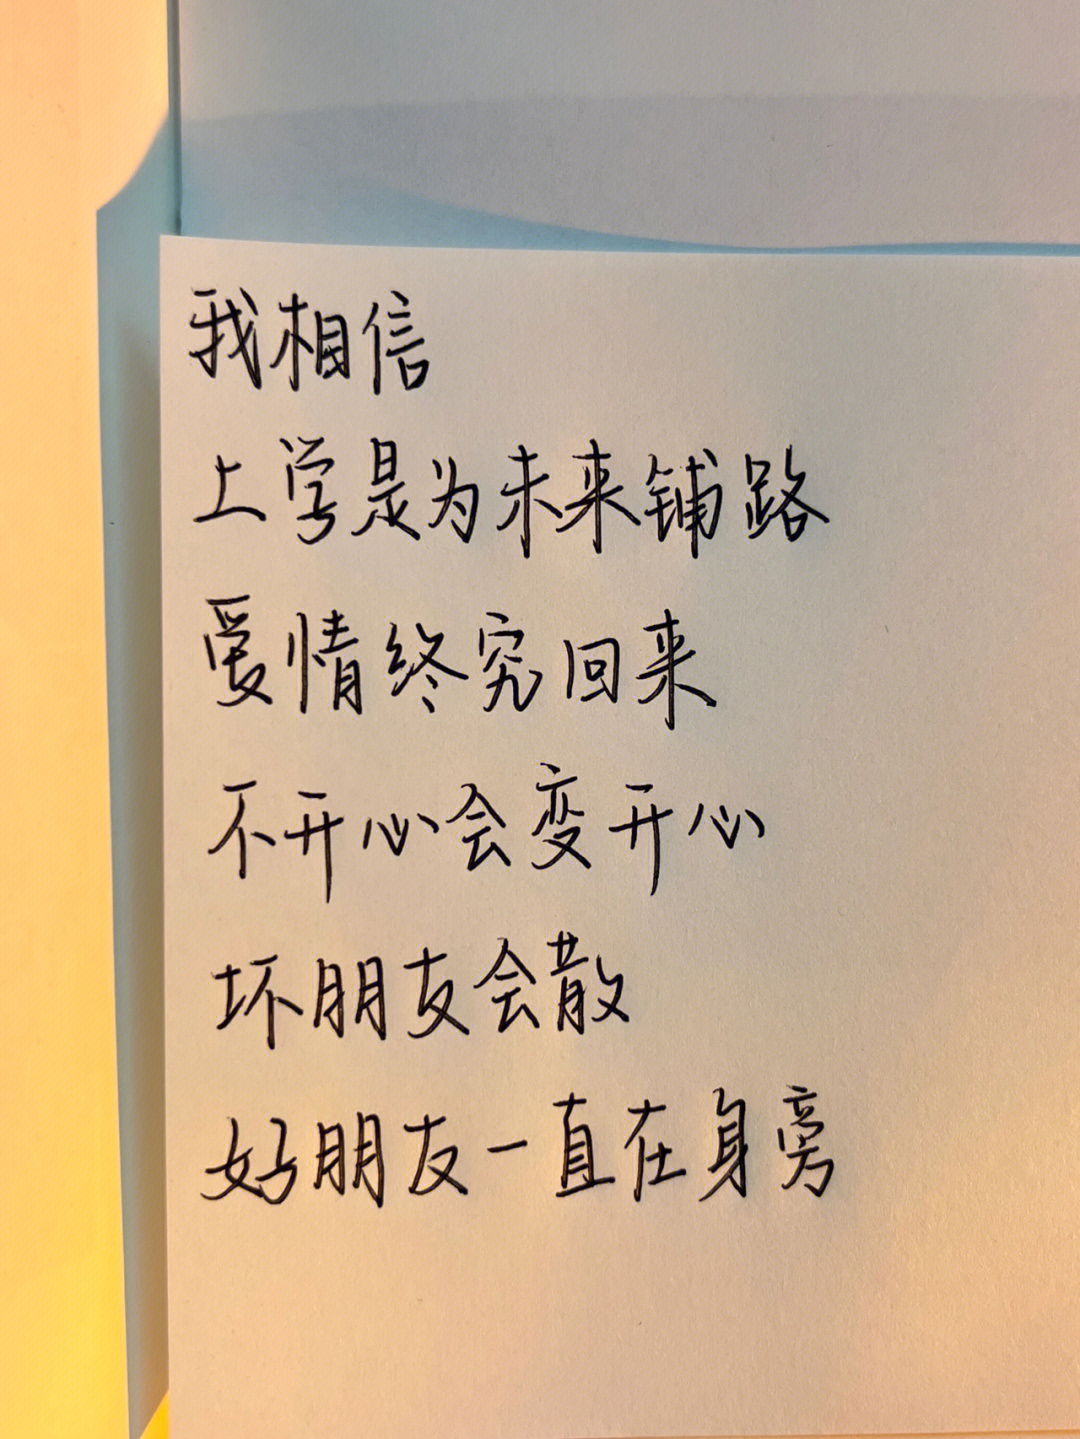 我相信
上学是为未来铺路
爱情终究回来
不开心会变开心
坏朋友会散
好朋友一直在身旁